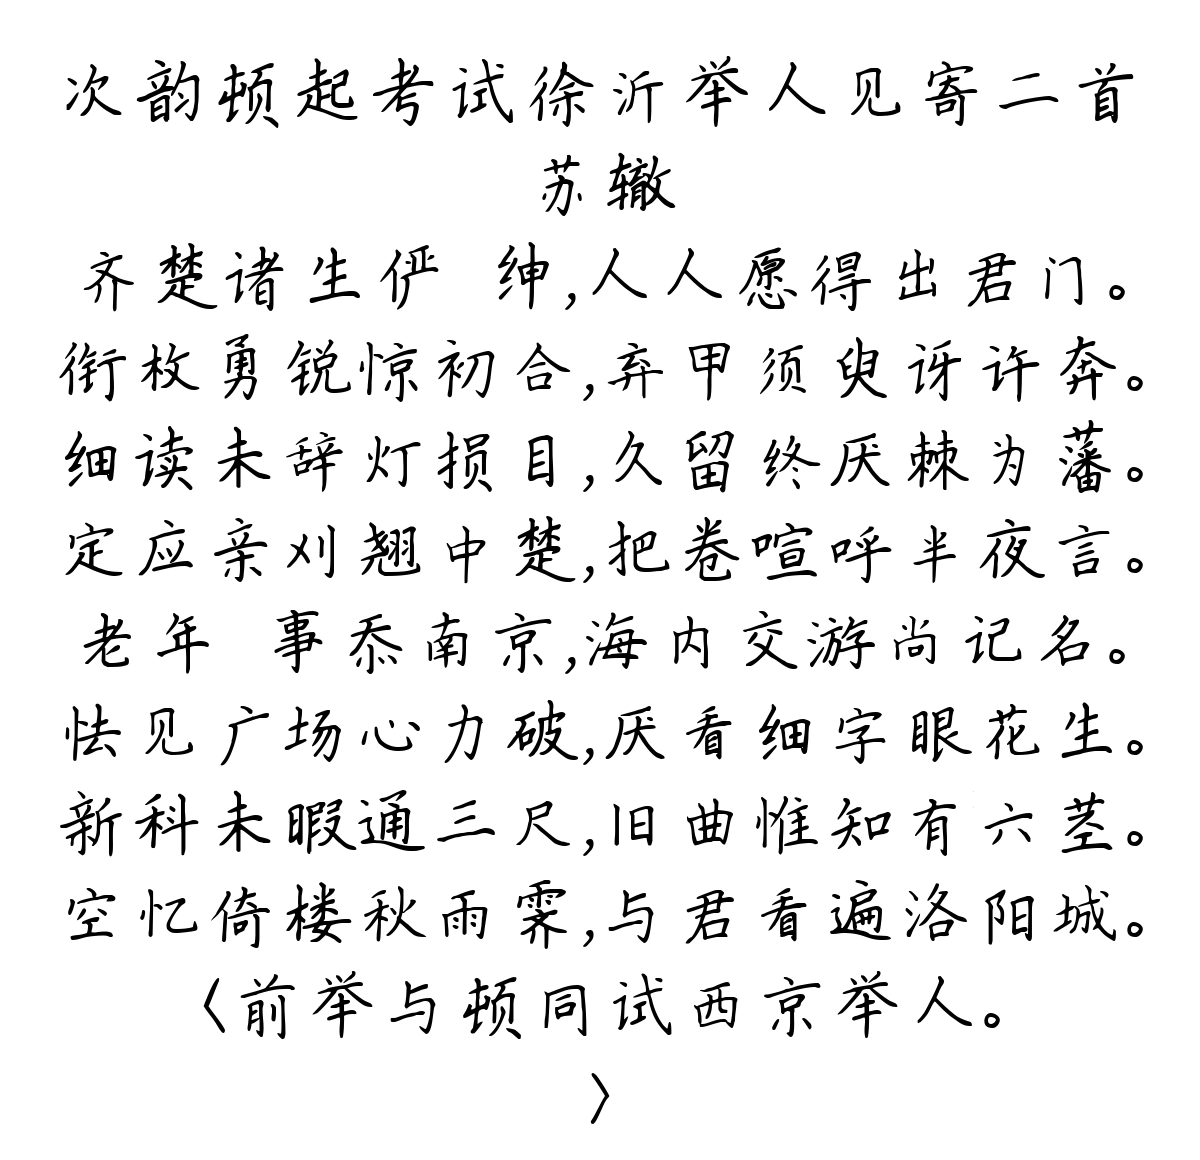 次韵顿起考试徐沂举人见寄二首
苏辙
齐楚诸生俨 绅,人人愿得出君门。
衔枚勇锐惊初合,弃甲须臾讶许奔。
细读未辞灯损目,久留终厌棘为藩。
定应亲刈翘中楚,把卷喧呼半夜言。
老年 事忝南京,海内交游尚记名。
怯见广场心力破,厌看细字眼花生。
新科未暇通三尺,旧曲惟知有六茎。
空忆倚楼秋雨霁,与君看遍洛阳城。
〈前举与顿同试西京举人。
〉